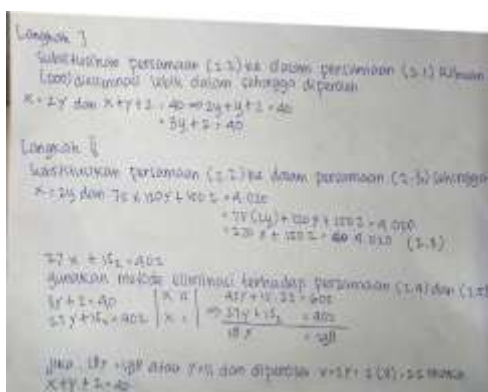 Langkah 3
Substitusikan persamaan (2.2) ke dalam persamaan (2.1)
(.000) dieliminasi lebih dalam sehingga diperoleh
x = 2y dan x+y+z = 40 ⇒ 2y+y+z = 40
= 3y + z = 40
Langkah 4
Substitusikan persamaan (2.2) ke dalam persamaan (2-3) sehingga
x = 2y dan 75 x 120y + 150z = 4.020
= 75 (2y) + 120y + 150z = 4.020
= 270 y + 150z = 4.020
27 y + 15z = 402
gunakan metode eliminasi terhadap persamaan (2.4) dan
3y + z = 40
27y + 15z = 402
18y = 198
jika 18y = 198 atau y = 11 dan diperoleh
x+y+z = 40